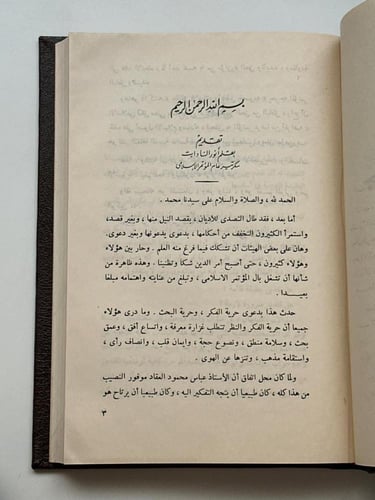 بسم الله الرحمن الرحيم
تقديم
بقلم أنور السادات
سكرتير عام المؤتمر الإسلامى
الحمد لله ، والصلاة والسلام على سيدنا محمد .
أما بعد، فقد طال التصدى للأديان ، بقصد النيل منها ، وبغير قصد،
واستمرأ الكثيرون التخفف من أحكامها، بدعوى يدعونها وبغير دعوى.
وهان على بعض الهيئات أن تشكك فيما فرغ منه العلم . وحار بين هؤلاء
وهؤلاء كثيرون ، حتى أصبح أمر الدين شكا وتظنينا . وهذه ظاهرة من
شأنها أن تشغل بال المؤتمر الاسلامى ، وتبلغ من عنايته واهتمامه مبلغا
بعيدا .
حدث هذا بدعوى حرية الفكر ، وحرية البحث . وما درى هؤلاء
جميعا أن حرية الفكر والنظر تتطلب غزارة معرفة ، واتساع أفق ، وعمق
بحث ، وسلامة منطق ، ونصوع حجة ، وإيمان قلب ، وانصاف رأى ،
واستقامة مذهب ، وتنزها عن الهوى .
ولما كان محل اتفاق أن الأستاذ عباس محمود العقاد موفور النصيب
من هذا كله ، كان طبيعيا أن يتجه التفكير اليه ، وكان طبيعيا أن يرتاح هو
٣